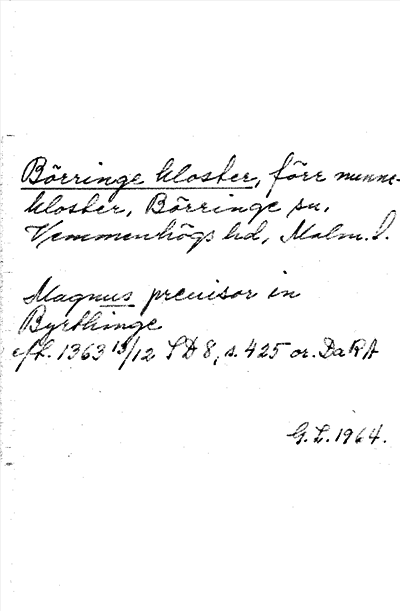 Börringe kloster, förr nunne-
kloster, Börringe sn,
Vemmenhögs hd, Malm. l.
Magnus prouisor in
Byrthinge
e/k. 1363 13/12 SD 8, s. 425 or. DaRA
G. L. 1964.